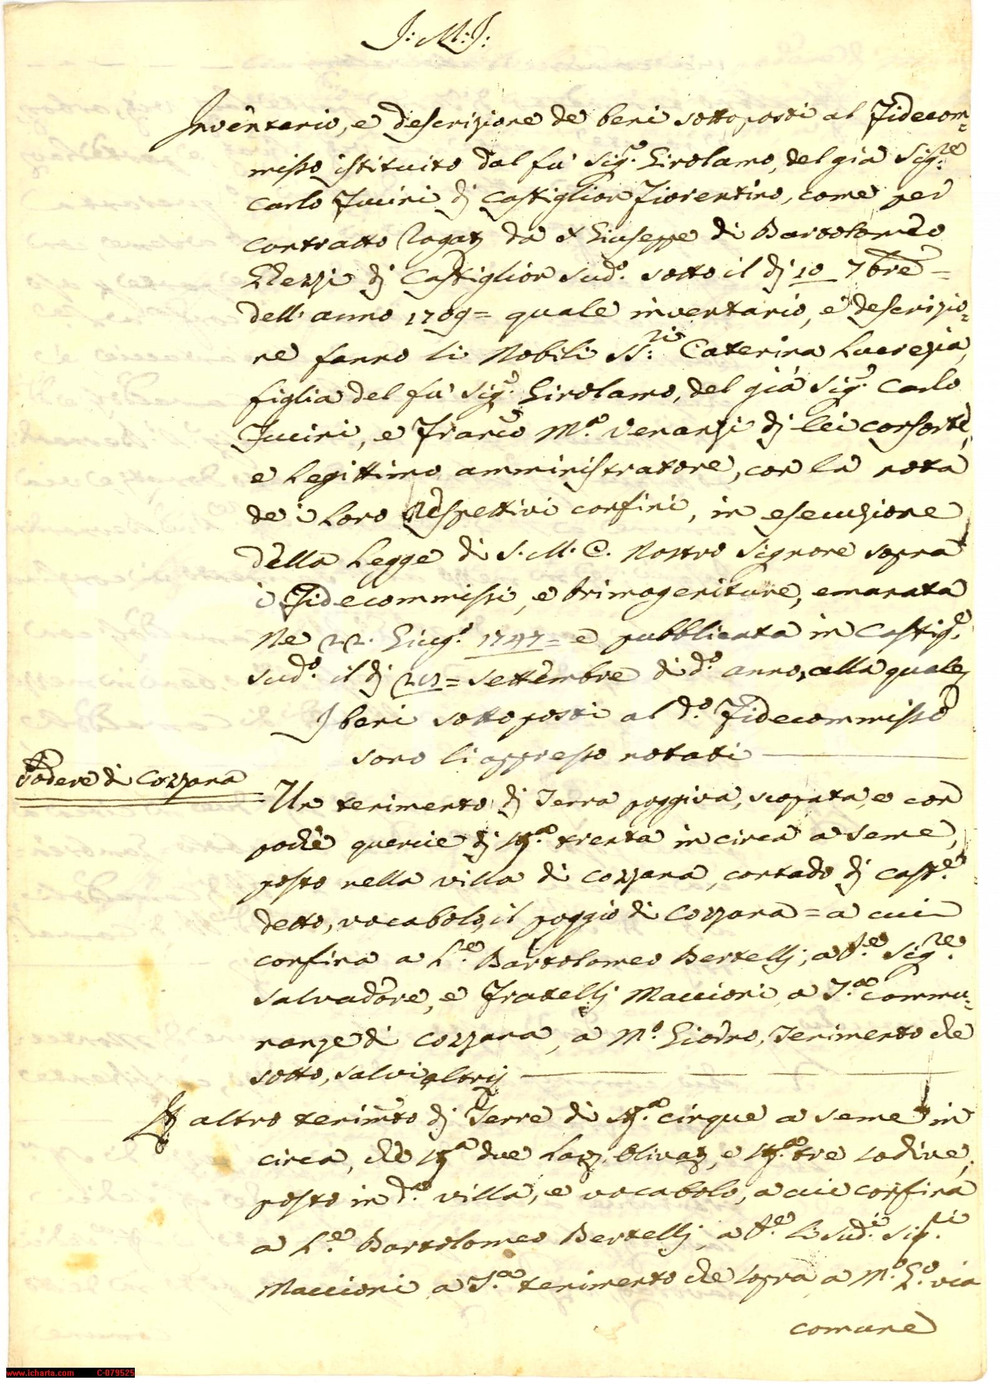 J: M: J:
Inventario, e descrizione de beni sottoposti al Fidecom=
misso istituito dal fù Sig.r Girolamo, del già Sig.re
Carlo Tucini di Castiglion Fiorentino, come per
contratto Rogato da Giuseppe di Bartolomeo
di Castiglion sud.o sotto il dì 10 7bre =
dell'anno 1709 = quale inventario, e descrizio=
ne fanno li Nobili SS.ri Caterina Lucrezia,
figlia del fù Sig.r Girolamo, del già Sig.r Carlo
Tucini, e Franc.o M.a Venanzi di lei consorte,
e legittimo amministratore, con la nota
de i Loro Respettivi confini, in esecuzione
della Legge di S. M. C. Nostro Signore sopra
i Fidecommissi, e Primogeniture, emanata
Ne 22. Giug.o 1747 = e pubblicata in Castig.e
sud.o il dì = settembre di d.o anno, alla quale
I beni sottoposti al d.o Fidecommisso
sono li appresso notati
Podere di Cozzana
Un tenimento di Terra poggiva, scopata, e con
poche quercie di st.a trenta in circa a seme,
posto nella villa di Cozzana, contado di Cast.e
detto, vocabolo il poggio di Cozzana = a cui
confina a L.e Bartolomeo Bertelli, a Sig.re
Salvadore, e Fratelli Maccioni, a T.a commu=
nanze di Cozzana, a M.o Giodno, Tenimento che
sotto, salvi
It altro tenim.to di Terre di st.a cinque a seme in
circa, che st.a due Olivat, e st.a tre sodive,
posto in d.a villa, e vocabolo, a cui confina
a L.e Bartolomeo Bertelli, a li sud.i Sig.ri
Maccioni a T.a tenimento che sopra a M.o G.o via
comune
www.icharta.com C-079525